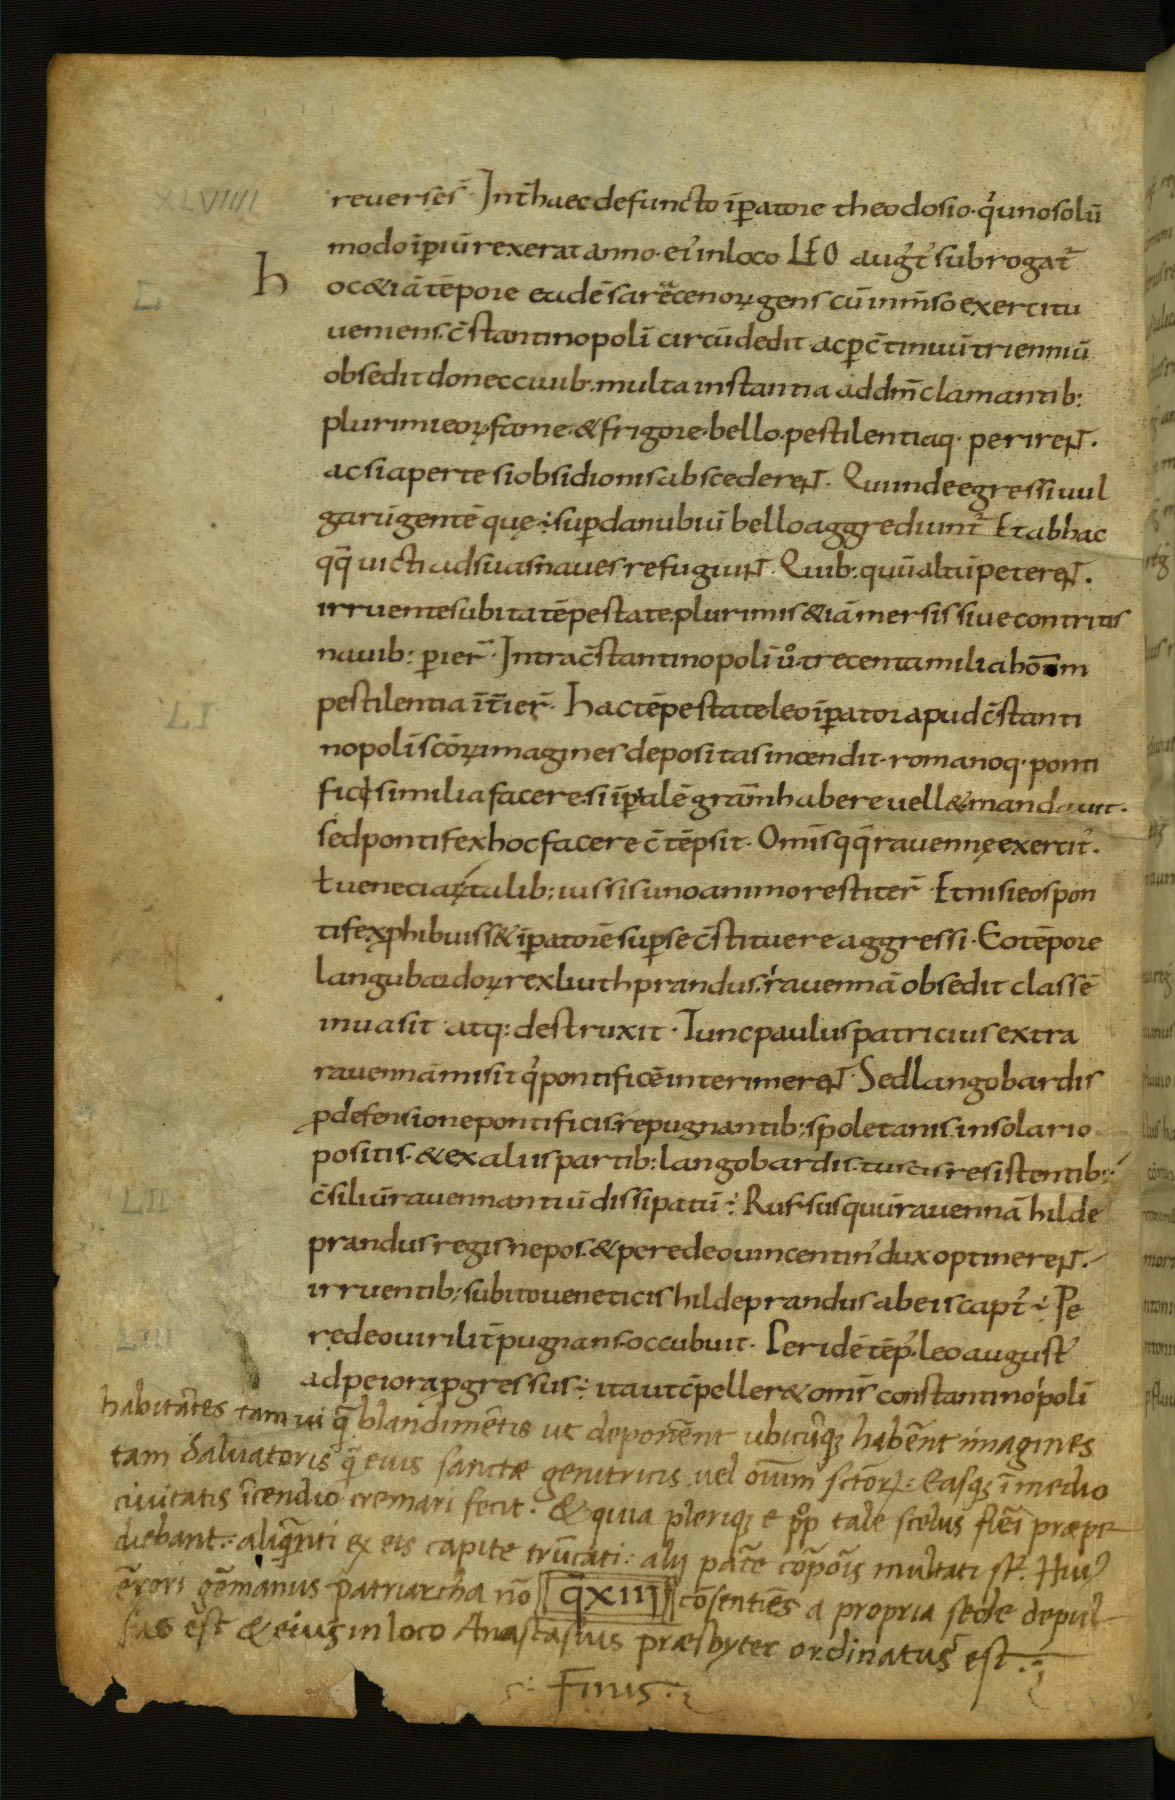 XLVIIII
reuersę s̄t. Int̄ haec defuncto īpatore theodosio. q̓ uno solū
modo īpiū rexerat anno. ei᷒ in loco LEO augt᷒ subrogat᷒
L
h
oc & iā tēpore eadē sarecenoꝝ gens cū inm̄so exercitu
ueniens. c̄stantinopolī circūdedit. ac p c̄tinuū trienniū
obsedit donec ciuib. multa instantia ad dm̄ clamantib:
plurimi eoꝝ fame. & frigore. bello. pestilentiaq. perireNT.
ac si aperte si obsidionis abscedereNT. Qui inde egressi uul
garū gentē quę ÷ sup danubiū bello aggrediunt᷒ Et ab hac
qq̄ uicti ad suas naues refugiuNT. Quib: quū altū petereNT.
irruente subita tēpestate. plurimis & iā mersis siue contritis
nauib: pier̄. Intra c̄stantinopolī uº. trecenta milia hom
pestilentia īt̄ier̄. Hac tēpestate leo īpator apud c̄stanti
LI
nopolī sc̄oꝝ imagines depositas incendit. romanoq. ponti
fici similia facere. si īpialē gram̄ habere uell& mandauit.
sed pontifex hoc facere c̄tēpsit. Om̄is qq̄ rauennę exercit᷒.
ł ueneciaꝝ talib: iussis uno animo restiter̄ Et nisi eos pon
tifex phibuiss& īpatorē sup se c̄stituere aggressi. Eo tēpore
langubardoꝝ rex liuthprandus. rauennā obsedit classē
inuasit atq: destruxit. Tunc paulus patricius extra
rauennā misit q̓ pontificē interimereNT. Sed langobardis
p defensione pontificis. repugnantib: spoletanis. in solario
positis. & ex aliis partib: langobardis. tuscis resistentib:
LII
c̄siliū rauennantiū dissipatū ÷ Rursus quū rauennā hilde
prandus regis nepos. & peredeo uincentin᷒ dux optinereNT.
irruentib; subito ueneticis hildeprandus ab eis capt᷒ ÷ Pe
LIII
redeo uirilit̄ pugnans. occubuit. Per idē tēp᷒. leo august᷒
ad peiora pgressus ÷ ita ut c̄peller& om̄s constantinopolī
habitātes tam ui q̄ blandimētis ut deponēnt ubicūqꝫ habēnt imagines
tam Saluatoris q̄ eius sanctæ genitricis uel oīum sctōrꝫ: Easqꝫ ī medio
ciuitatis īcendio cremari fecit. & quia plerique e pop tale scelus fieī præpe
diebant: aliqānti ex eis capite trūcati: alij pate corpōis multati st. Hui᷒
errori gēmanus patriarcha nō cōsentiēs a propria sede depul-
q̄XIII
sus est & eius in loco Anastasius præsbyter ordinatus est.
Finis.